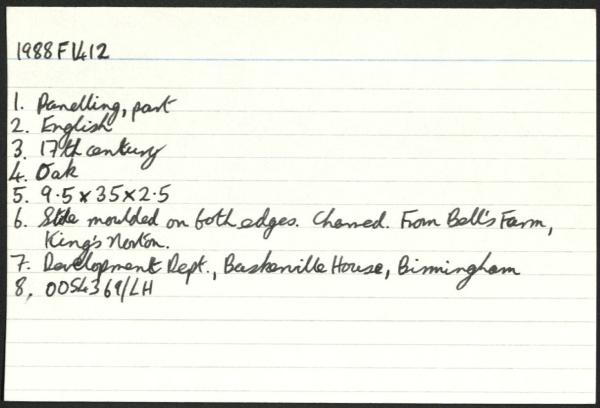 1988F1412
1. Panelling, part
2. English
3. 17th century
4. Oak
5. 9.5 x 35 x 2.5
6. Stile moulded on both edges. Charred. From Bell's Farm,
King's Norton.
7. Development Dept., Baskerville House, Birmingham
8. 0054369/LH